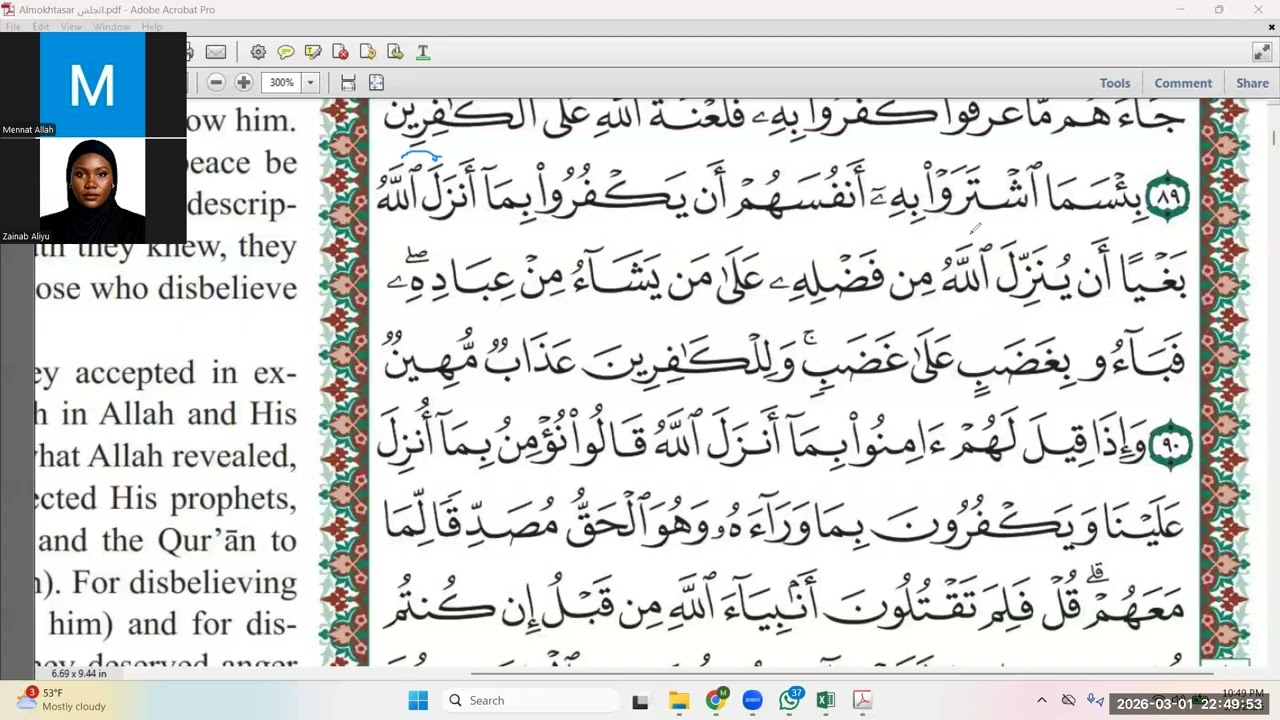 Almokhtasar انجلش.pdf - Adobe Acrobat Pro
File Edit View Window Help
300%
Tools Comment Share
M
Mennat Allah
Zainab Aliyu
ow him.
peace be
descrip-
they knew, they
ose who disbelieve
ey accepted in ex-
h in Allah and His
what Allah revealed,
ected His prophets,
and the Qur’ān to
n). For disbelieving
him) and for dis-
hey deserved anger
جَآءَهُم مَّا عَرَفُوا۟ كَفَرُوا۟ بِهِۦ فَلَعْنَةُ ٱللَّهِ عَلَى ٱلْكَـٰفِرِينَ
٨٩ بِئْسَمَا ٱشْتَرَوْا۟ بِهِۦٓ أَنفُسَهُمْ أَن يَكْفُرُوا۟ بِمَآ أَنزَلَ ٱللَّهُ
بَغْيًا أَن يُنَزِّلَ ٱللَّهُ مِن فَضْلِهِۦ عَلَىٰ مَن يَشَآءُ مِنْ عِبَادِهِۦۖ
فَبَآءُو بِغَضَبٍ عَلَىٰ غَضَبٍۚ وَلِلْكَـٰفِرِينَ عَذَابٌ مُّهِينٌ
٩٠ وَإِذَا قِيلَ لَهُمْ ءَامِنُوا۟ بِمَآ أَنزَلَ ٱللَّهُ قَالُوا۟ نُؤْمِنُ بِمَآ أُنزِلَ
عَلَيْنَا وَيَكْفُرُونَ بِمَا وَرَآءَهُۥ وَهُوَ ٱلْحَقُّ مُصَدِّقًا لِّمَا
مَعَهُمْۗ قُلْ فَلِمَ تَقْتُلُونَ أَنۢبِيَآءَ ٱللَّهِ مِن قَبْلُ إِن كُنتُم
6.69 x 9.44 in
3
53°F
Mostly cloudy
Search
zoom
37
10:49 PM
2026-03-01 22:49:53